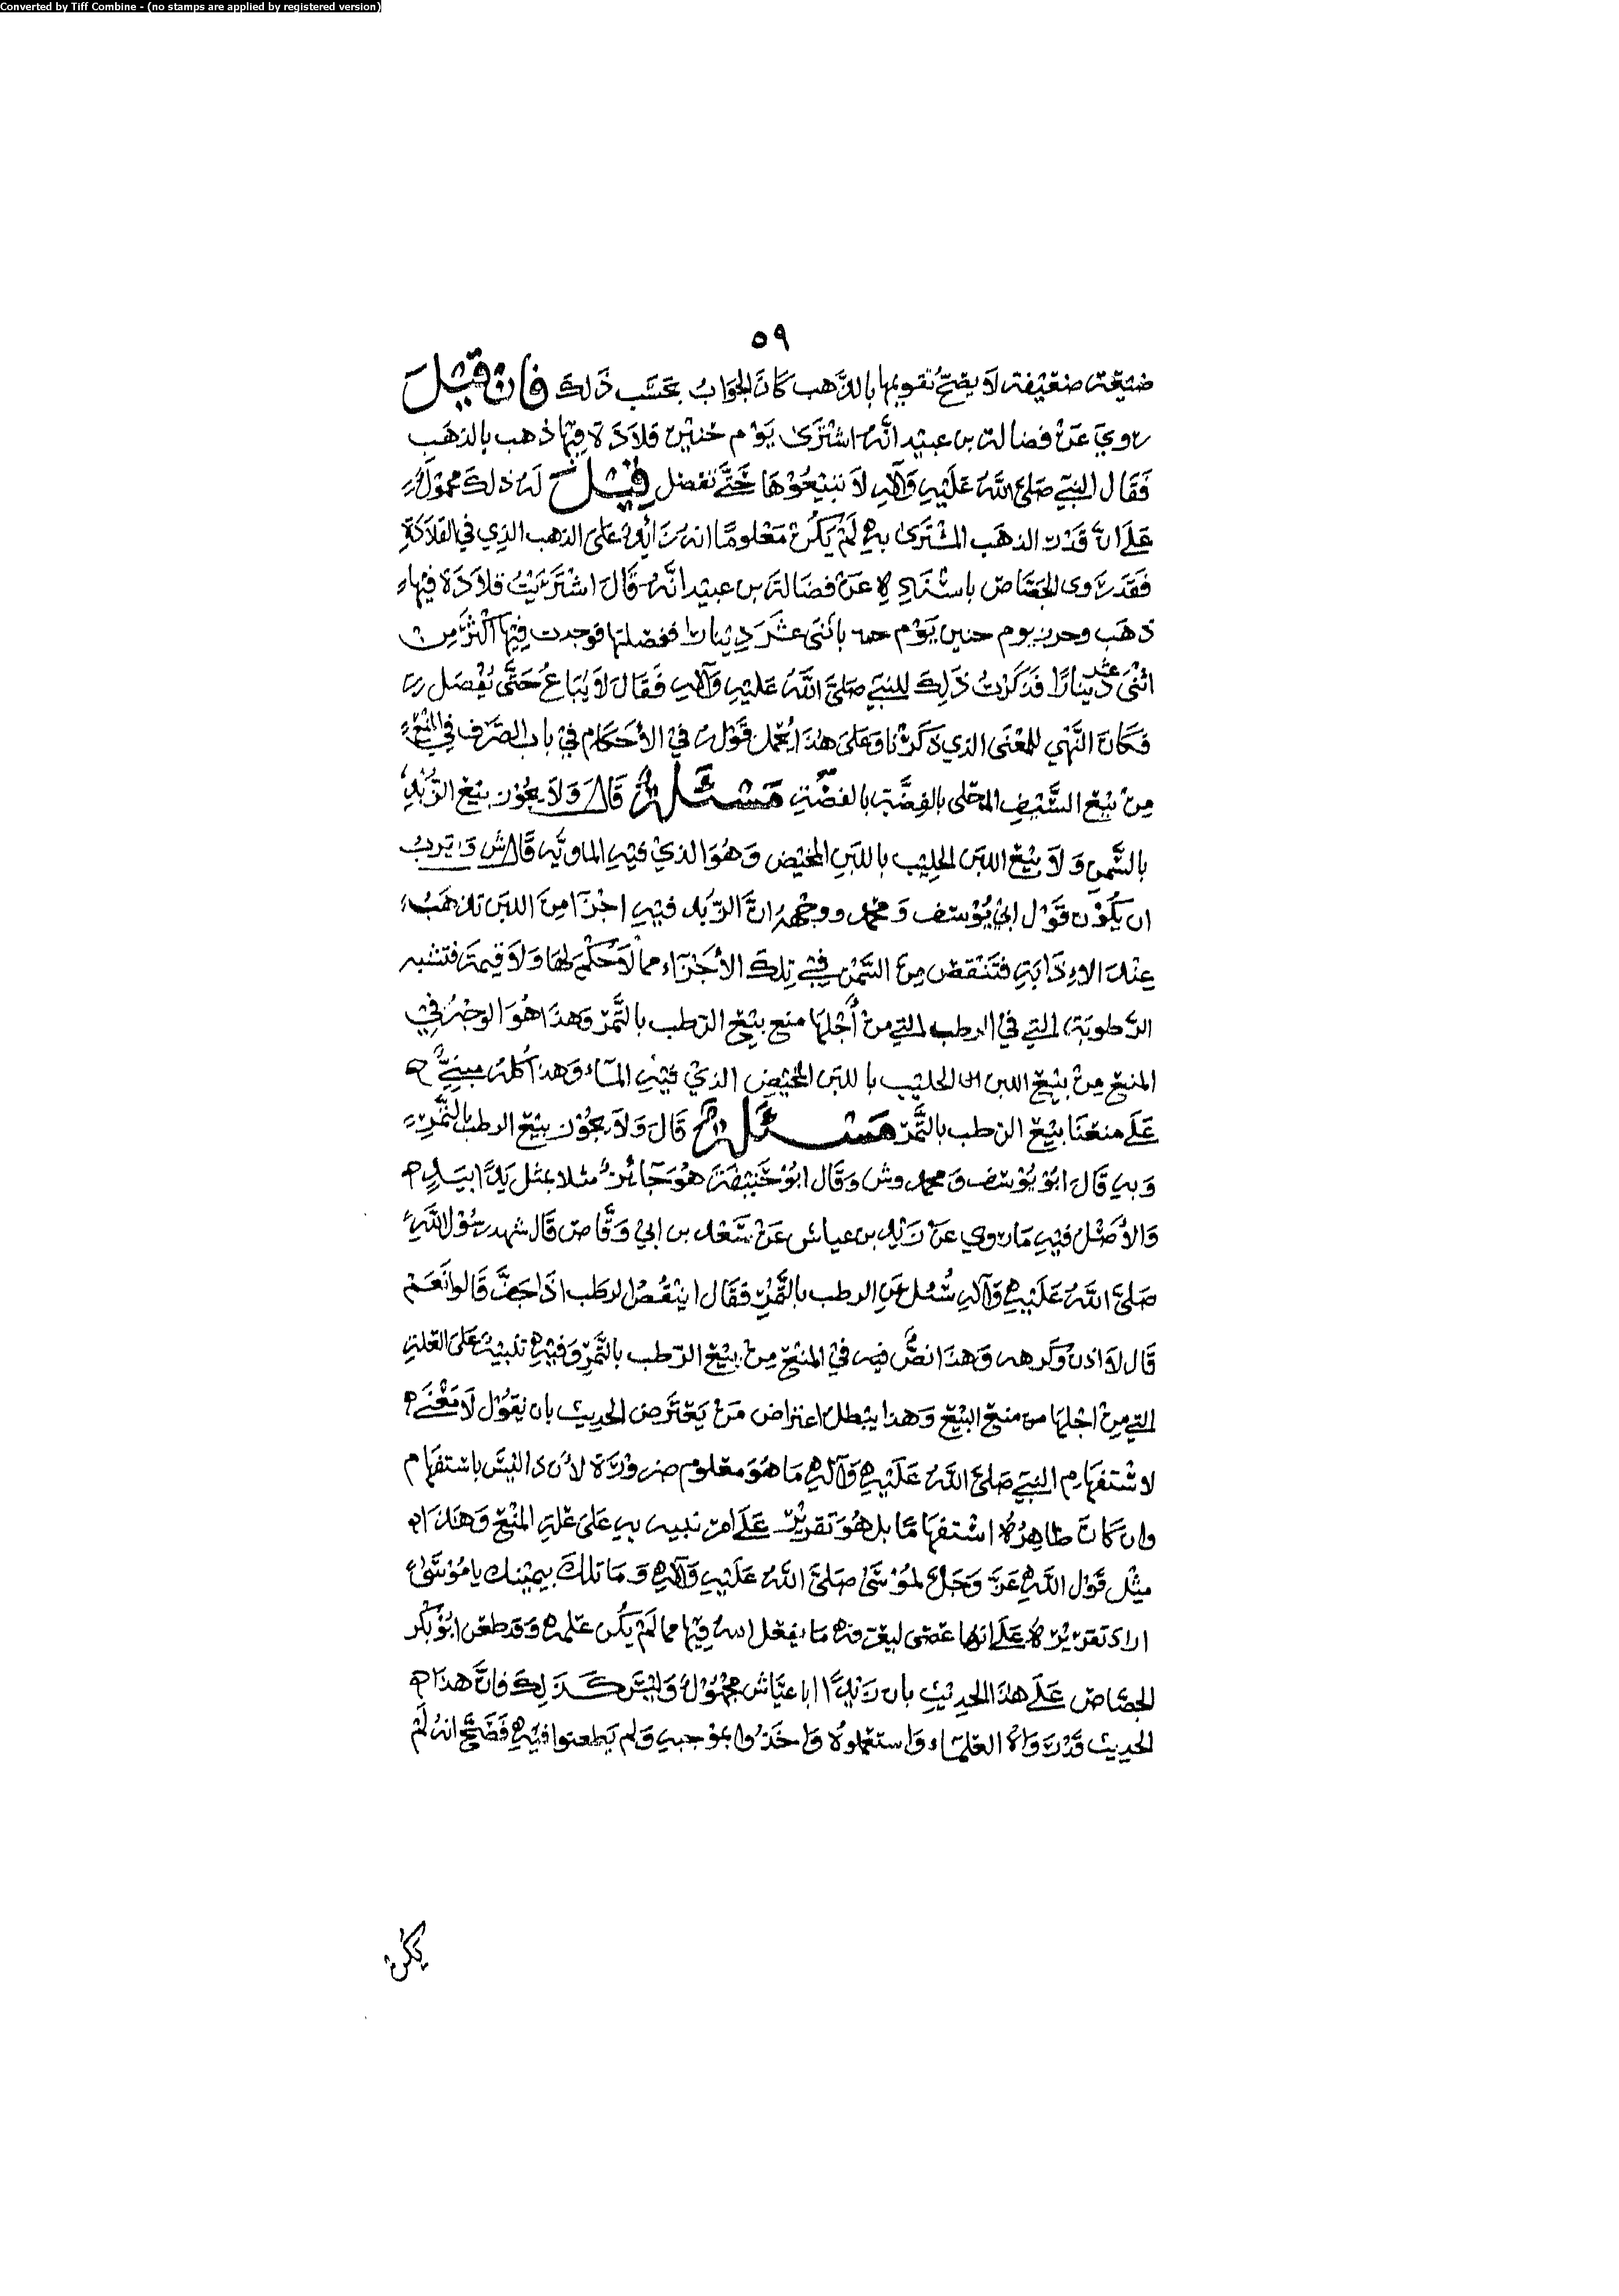 Converted by Tiff Combine - (no stamps are applied by registered version)
٥٩
ضعيفة لا يصحّ تقويمها بالذهب كانَ الجوَابُ بحَسَب ذَلكَ فان قيل
روي عَنْ فضالة بن عبيد انَّهُ اشترَى يَوْم حنين قلاَدَة فِيْهَا ذهب بالذهَب
فَقَال النبيّ صَلى اللهُ عَلَيْهِ وَآلهِ لاَ تبيْعُوْهَا حَتَّى تفصل قيْل لهُ ذلكَ محمُوْلٌ
عَلَى انَّ قَدْر الذهَب المشترَى بهِ لَمْ يَكُنْ مَعْلومًا انه زَائِدٌ على الذهب الذِي في القلاَدَةِ
فَقَدْ رَوى الجَصَّاصُ باسْنَادِهِ عَنْ فضَالةَ بن عبيْد انَّهُ قَالَ اشترَيْتُ قلاَدَة فيْهَا
ذهَب وخرز يوم حنين يَوْم باثنى عشَرَ دِيْنارًا ففصلتها فوجدت فِيْهَا اكْثرَ مِنْ
اثنَىْ عشر دِيْنارًا فَذكَرْتُ ذَلِكَ للنَبيّ صَلىَّ اللهُ عَليْهِ وَآلهِ فَقَالَ لاَ يُبَاعُ حَتَّى يُفْصَل
فكَانَ النَّهْي للمعْنَى الذي ذَكَرْنا وَعَلىَ هٰذَا يُحْمَل قَوْلهُ فيْ الأَحكام فيْ باب الصَّرْف في المنْع
مِنْ بَيْع السَّيْف المحَلى بالفِضَّة بالفضّة مَسْئلة قَالَ وَلاَ يجُوْز بَيْع الزُّبْدِ
بالسَّمْن وَلاَ بَيْع اللبَن الحلِيْب باللبَنِ المخيْض وَهُوَ الذيْ فيْهِ الماء وبه قَالَ ش وَيَقرب
ان يكُوْن قَوْل ابيْ يُوْسف وَمحمد ووجهُهُ انَّ الزّبْد فيْهِ اجْزَآ مِنَ اللبَن تذهَبُ
عِنْدَ الاِذَابَةِ فتَنْقصُ مِنَ السَّمْن فبقي تِلكَ الأَجْزَاء مما لاَ حُكْمَ لهَا وَلاَ قيمَة فتشبه
الرَّطوبَة التي في الرطب التي مِنْ أَجْلهَا منع بَيْع الرّطب بالتَّمْر وَهَذا هُوَ الوجْهُ فيْ
المنع مِنْ بَيْع اللبن الحلِيْب باللبَن المخيْض الذيْ فيْهِ المآء وَهَذا كُلهُ مبنيٌّ
عَلَى منعنَا بَيْع الرّطب بالتَّمْر مَسْئلة قَالَ وَلاَ يجُوْز بَيْع الرطب بالتَّمْر
وَبهِ قَالَ ابُوْ يُوْسُف وَمحمد وش وَقَال ابُوْ حَنيفةَ هُوَ جَآئزٌ مثلا بمثل يَدًا بيَدٍ
وَالأَصْل فيْهِ مَا روي عَنْ زَيْد بن عياش عَنْ سَعْد بن ابيْ وَقَّاص قَال شهد رسُوْل اللهِ
صَلىَّ اللهُ عَلَيْهِ وَآلهِ سُئل عَنِ الرطب بالتَّمْر فَقَال اينْقُصُ الرطَب اذَا جَفَّ قَالوا نَعَمْ
قَال لا اذن وَكرهه وَهَذا نصٌّ فيه في المنْع مِنْ بَيْع الرّطب بالتَّمْر وَفيْهِ تنبيهٌ عَلى العلةِ
التي مِنْ اجْلهَا منع البَيْع وَهذا يبْطل اعتراض مَنْ يَعْترَض الحديث بان يَقوُل لاَ مَعْنَى
لاسْتفهَام النبيّ صَلىَّ اللهُ عَلَيْهِ وَآلهِ مَا هُوَ مَعْلوم ضروْرَة لأَن ذا ليْسَ باسْتفهَام
وان كَانَ ظاهِرُهُ اسْتفهَامًا بل هُوَ تَقْريْر عَلَى امْر نبيه بهِ عَلى علةِ المنْع وَهَذا
مثْل قَوْل اللهِ عَزَّ وَجَلَّ لمُوْسَى صَلىَّ اللهُ عَلَيْهِ وَآلهِ وَمَا تلكَ بيَميْنك يَا مُوْسَى
اراد تقريْرهُ عَلَى انها عَصى ليعْرفه مَا يفعَل اللهُ فيْهَا مما لَمْ يَكُن عَلمه وَقَد طعن ابُوْ بَكْر
الجصَاص عَلَى هَذا الحديْث بان زَيْدًا ابا عيَّاش مجهُوْلٌ وَليْسَ كَذَلِكَ فانَّ هَذا
الحديث قَدْ رَوَاهُ العُلمَاء وَاستعملُوهُ وَاخَذُوا بمُوْجبهِ وَلم يَطعنوا فيْهِ فَصَحَّ انهُ لَمْ
يكن